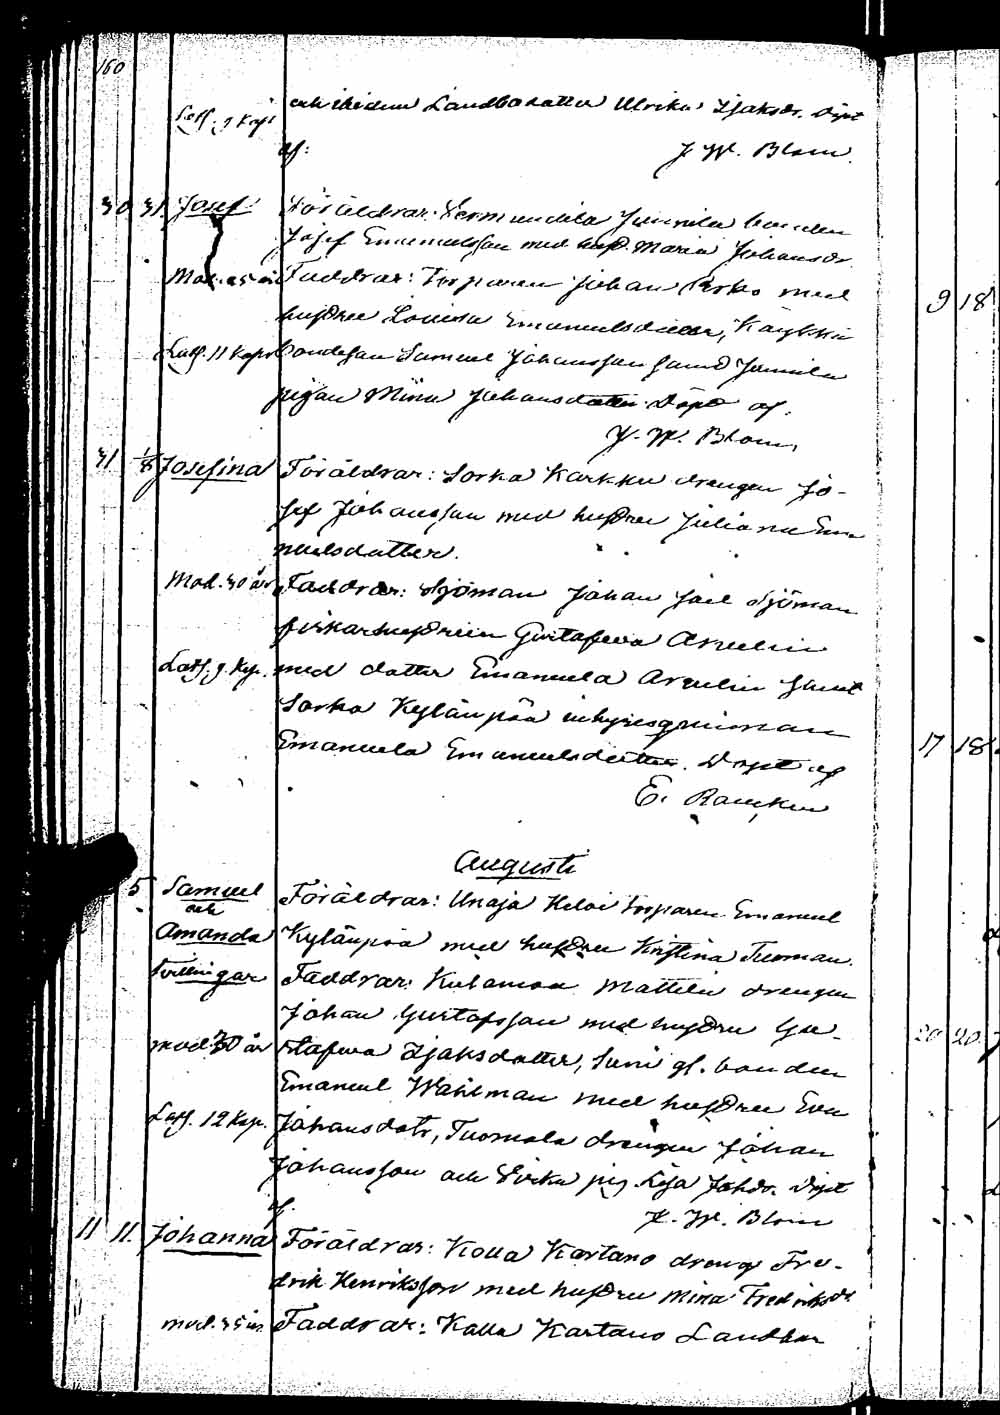 160
och Landbodotter Ulrika Isaksdr. Döpt
Lösf. 9 Kop.
af: J. W. Blom.
30 31. Josef Föräldrar: Sermundila Junnila bonden
Josef Emanuelsson med hust. Maria Johansdr.
Mod. 25 år Faddrar: Torparen Johan med
hustru Lovisa Emanuelsdotter, Käykkä
Lösf. 11 Kop. bondeson Samuel Johansson samt Junnila
pigan Mina Johansdotter. Döpt af.
J. W. Blom.
31 1/8 Josefina Föräldrar: Sorka Karkku drengen Jo-
sef Johansson med hustru Juliana Ema
nuelsdotter.
Mod. 30 år Faddrar: Sjöman Johan Joel Sjöman
Gustafva Arvelin
Lösf. 9 Kop. med dotter Emanuela Arvelin samt
Sorka Kylänpää inhysesqvinnan
Emanuela Emanuelsdotter. Döpt af
E. Rancken
Augusti
5 Samuel Föräldrar: Unaja Heloi torparen Emanuel
och
Amanda Kylänpää med hustru Kristina Tuoman.
Tvillingar Faddrar: Kulamaa Mattila drengen
Johan Gustafsson med hustru Gu-
mod. 30 år stafva Isaksdotter, Suni gl. bonden
Emanuel Wahlman med hustru Eva
Lösf. 12 Kop. Johansdotr, Tuomola drengen Johan
Johansson och pig. Lisa Johdr. Döpt
af. J. W. Blom
11 11. Johanna Föräldrar: Kolla Kartano dreng Fre-
drik Henriksson med hustru Mina Fredriksdr
mod. 35 år Faddrar: Kolla Kartano Landbon
9 18
17 18
20 20